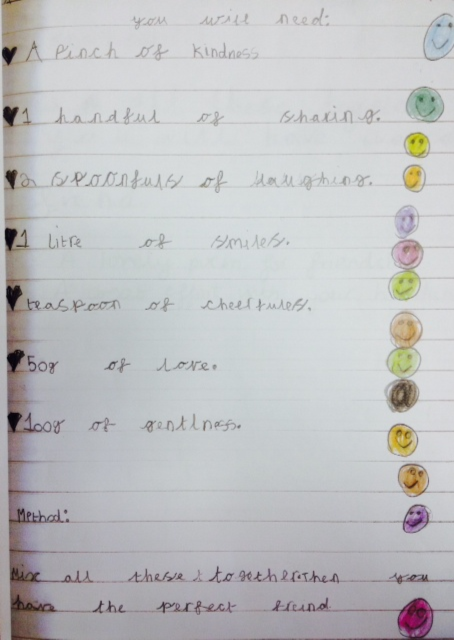 you will need:
♥ A Pinch of kindness
♥ 1 handful of sharing.
♥ 2 spoonfuls of laughing.
♥ 1 litre of smiles.
♥ teaspoon of cheerfules.
♥ 50g of love.
♥ 100g of gentlness.
Method:
Mix all these together then you
have the perfect freind